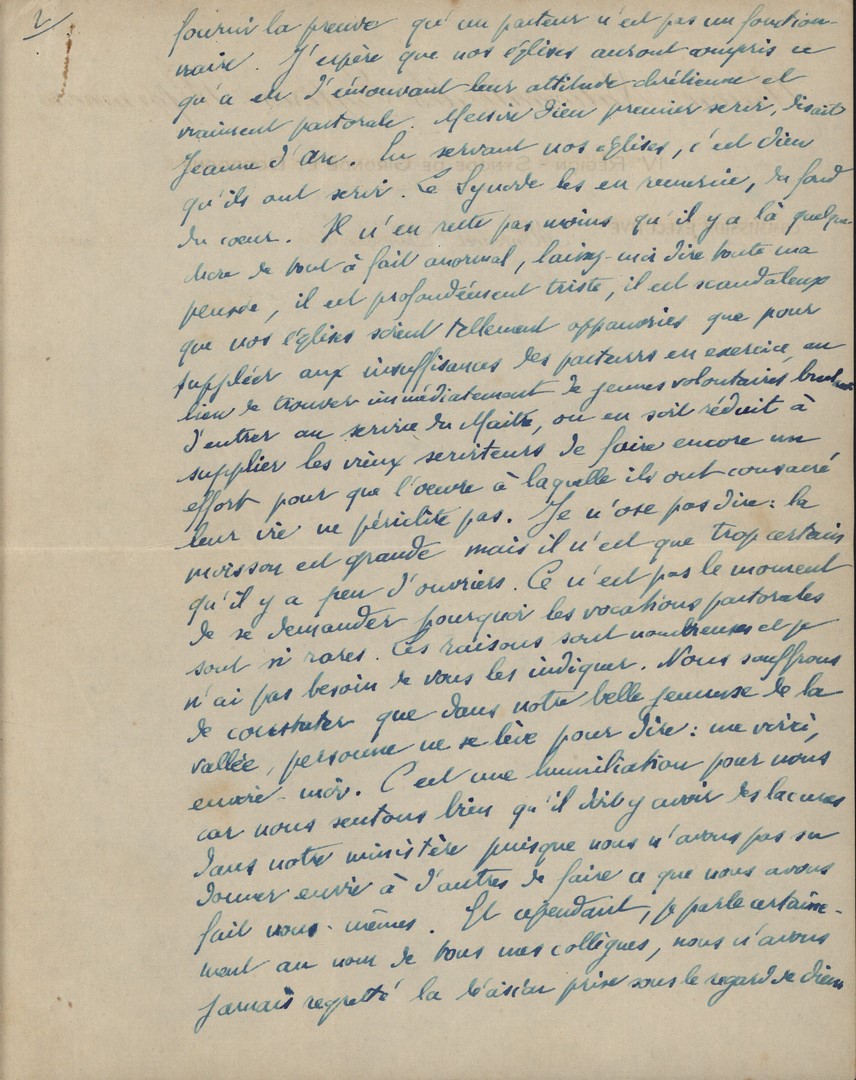 2/
fournir la preuve qu'un pasteur n'est pas un fonction-
naire. J'espère que nos églises auront compris ce
qu'a eu d'émouvant leur attitude chrétienne et
vraiment pastorale. Messire Dieu premier servi, disait
Jeanne d'Arc. En servant nos églises, c'est Dieu
qu'ils ont servi. Le Synode les en remercie, du fond
du coeur. Il n'en reste pas moins qu'il y a là quelque
chose de tout à fait anormal, laissez-moi dire toute ma
pensée, il est profondément triste, il est scandaleux
que nos églises soient tellement appauvries que pour
suppléer aux insuffisances des pasteurs en exercice, au
lieu de trouver immédiatement de jeunes volontaires brulant
d'entrer au service du Maître, on en soit réduit à
supplier les vieux serviteurs de faire encore un
effort pour que l'oeuvre à laquelle ils ont consacré
leur vie ne périclite pas. Je n'ose pas dire : la
moisson est grande mais il n'est que trop certain
qu'il y a peu d'ouvriers. Ce n'est pas le moment
de se demander pourquoi les vocations pastorales
sont si rares. Les raisons sont nombreuses et je
n'ai pas besoin de vous les indiquer. Nous souffrons
de constater que dans notre belle jeunesse de la
vallée, personne ne se lève pour dire : me voici,
envoie-moi. C'est une humiliation pour nous
car nous sentons bien qu'il doit y avoir des lacunes
dans notre ministère puisque nous n'avons pas su
donner envie à d'autres de faire ce que nous avons
fait nous-mêmes. Et cependant, je parle certaine-
ment au nom de tous mes collègues, nous n'avons
jamais regretté la décision prise sous le regard de Dieu